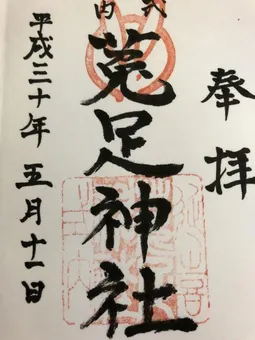 奉拝
式内
菟足神社
平成三十年五月十一日